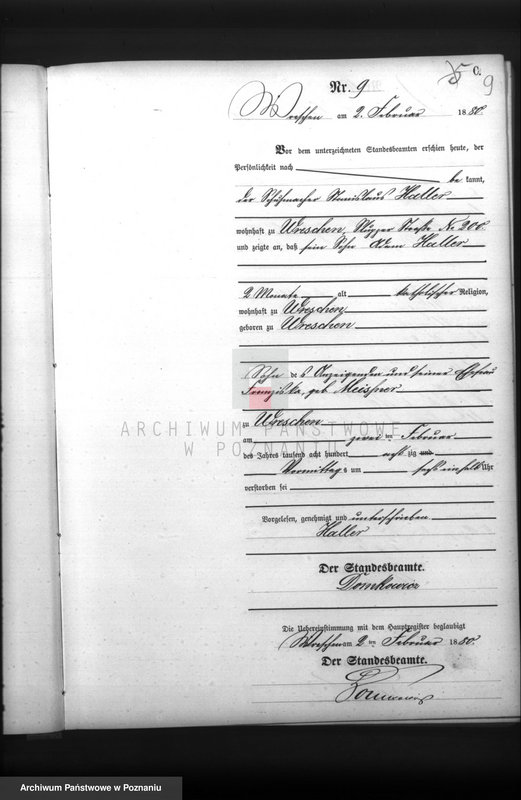 C.
9
Nr. 9
Wreschen am 2. Februar 1880.
Vor dem unterzeichneten Standesbeamten erschien heute, der
Persönlichkeit nach
be kannt,
der Schuhmacher Stanislaus Haller
wohnhaft zu Wreschen, Straße No 200.
und zeigte an, daß sein Sohn Adam Haller
2 Monate alt katholischer Religion,
wohnhaft zu Wreschen
geboren zu Wreschen
Sohn des Anzeigenden und seiner Ehefrau
Franziska, geb. Meissner
zu Wreschen
am zwei ten Februar
des Jahres tausend acht hundert acht zig und
Vormittags um sechs einhalb Uhr
verstorben sei
Vorgelesen, genehmigt und unterschrieben
Haller
Der Standesbeamte.
Die Uebereinstimmung mit dem Hauptregister beglaubigt
Wreschen am 2 ten Februar 1880.
Der Standesbeamte.
ARCHIWUM PAŃSTWOWE
W POZNANIU
Archiwum Państwowe w Poznaniu
Archiwum Państwowe w Poznaniu